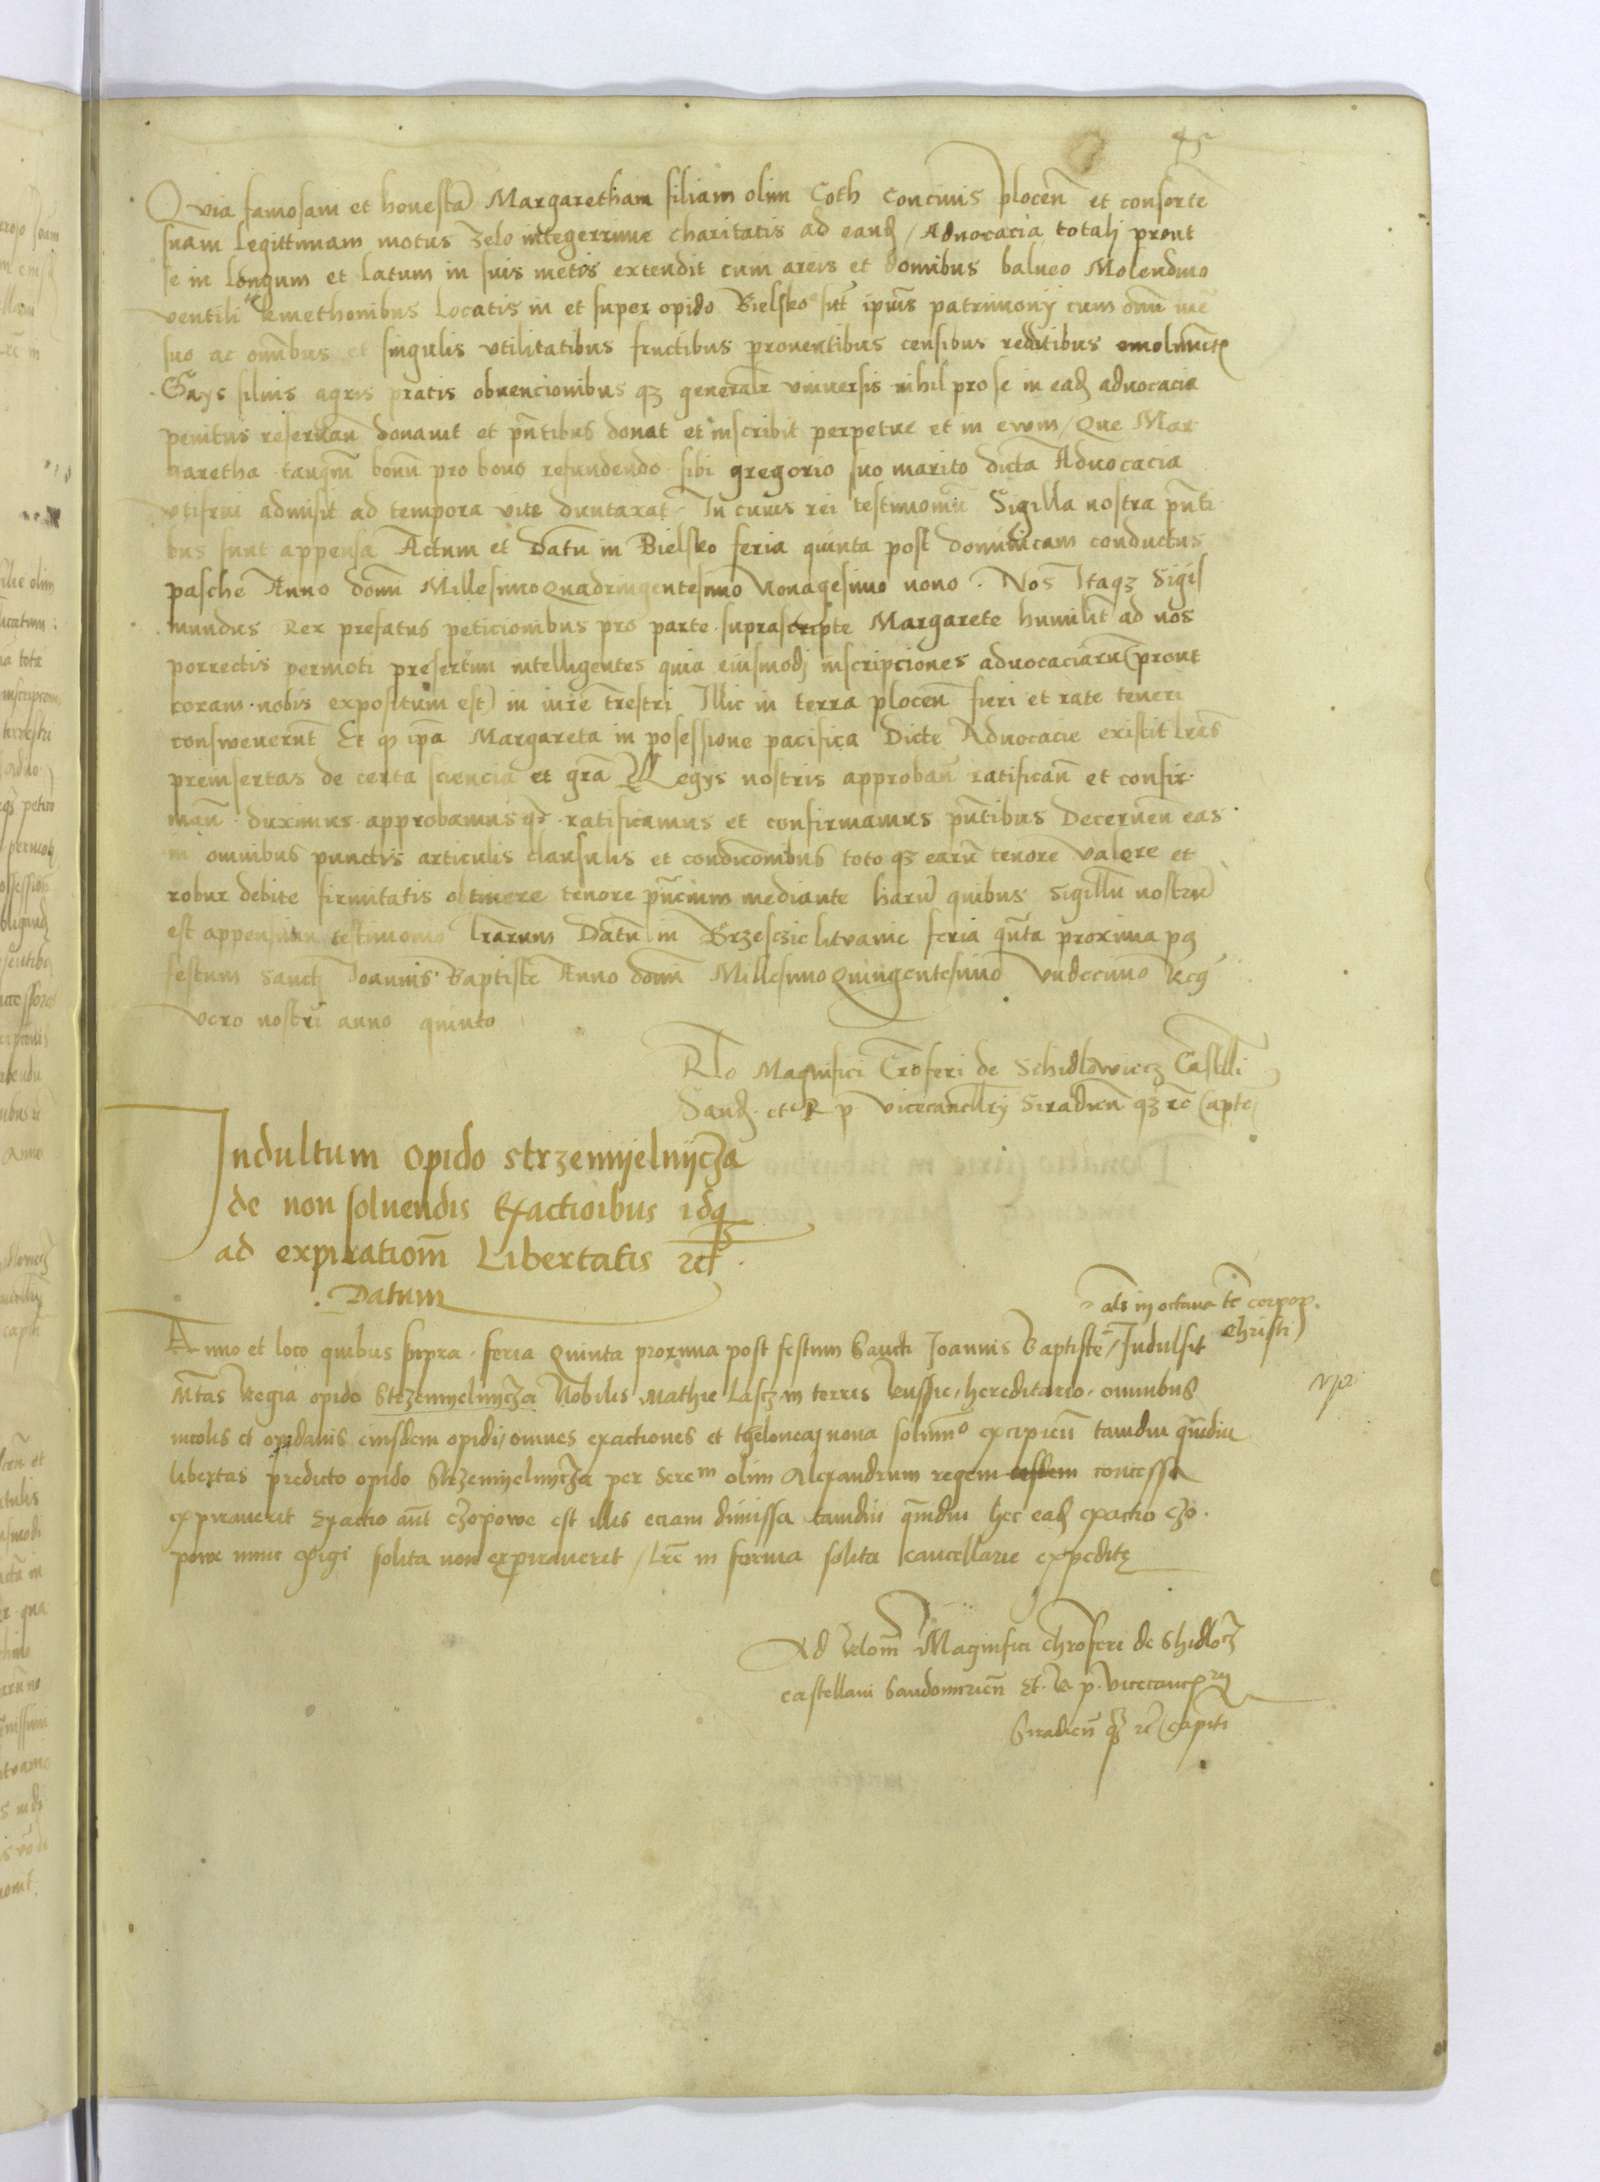 Quia famosam et honestā Margaretham filiam olim Coth concivis plocen̄ et consorte
suam legittimam motus zelo integerrime charitatis ad eand / Advocacia totalj prout
se in longum et latum in suis metis extendit cum areis et domibus balneo Molendino
ventili kmethonibus locatis in et super opido Bielsko sūt ipiūs patrimonij cum omī iure
suo ac omībus et singulis vtilitatibus fructibus proventibus censibus redditibus emolument
Gays silvis agris pratis obvencionibus qz generalr vniversis nihil pro se in ead advocacia
penitus reservan̄ donavit et pn̄tibus donat et inscribit perpetue et in evvm / Que Mar
garetha tanqm̄ bonū pro bono refundendo sibi gregorio suo marito dicta Advocacia
vtifrui admisit ad tempora vite duntaxat In cuius rei testimoniū Sigilla nostra pn̄ti
bus sunt appensa Actum et Datū in Bielsko feria quinta post dominicam conductus
pasche Anno domī Millesimo Quadringentesimo Nonagesimo nono . Nos Itaqz Sigis
mundus Rex prefatus peticionibus pro parte suprascripte Margarete humilit ad nos
porrectis permoti presertim intelligentes quia eiusmodj inscripciones advocaciarū (prout
coram nobis expositum est) in iure trestri Illic in terra plocen̄ fieri et rate teneri
consweverūt Et qz ipā Margareta in posessione pacifica Dicte Advocacie existit lrās
preinsertas de certa sciencia et grā Regys nostris approban̄ ratifican̄ et confir
man̄ duximus approbamus qz ratificamus et confirmamus pn̄tibus Decernen̄ eas
in omnibus punctis articulis clausulis et condicōnibus toto qz earū tenore valore et
robur debite firmitatis obtinere tenore pn̄cium mediante harū quibus Sigillū nostrū
est appensum testimonio lrārum Datū in Brzesczie litvanie feria qn̄ta proxima pz
festum Sanctj Joannis Baptiste Anno domī Millesimo Quingentesimo Vndecimo Reg
vero nostri anno quinto
Rlo Magnifici Croferi de Schidlowiecz Castelli
Sand. et R p vicecancllrj Siradien̄ qz rc Capte
Indultum opido Strzemijelnijcza
de non solvendis Exactioībus idqz
ad expirationē Libertatis rc
Datum
als in octava fe corpor.
Christi
Anno et loco quibus supra feria Quinta proxima post festum Sancti Joannis Baptiste / Indulsit
Mtas Regia opido Strzemijelnijcza Nobilis Mathie Lascz in terris Russie / hereditario . omnibus
incolis et opidanis eiusdem opidi / omnes exactiones et theloneaz nova solumo excipien̄ tamdiu qm̄diu
libertas predicto opido Strzemijelnijcza per Serem olim Alexandrum regem concessa
expiraverit Exactio aūt czopowe est illis eciam dimissa tamdiu qm̄diu hec ead exactio czo
powe nunc exigi solita non expiraverit / Lrē in forma solita cancellarie expedite
Ad relom̄ Magnifici Chroferi de Shidlocz
castellani Sandomirien̄ et. R. p. vicecancrij
Siradien̄ qz rc Capiti